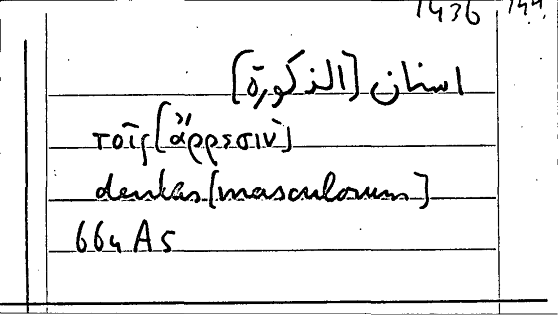 1436 144
اسنان [الذكورة]
τοῖς [ἄρρεσιν]
dentas [masculorum]
664 A5